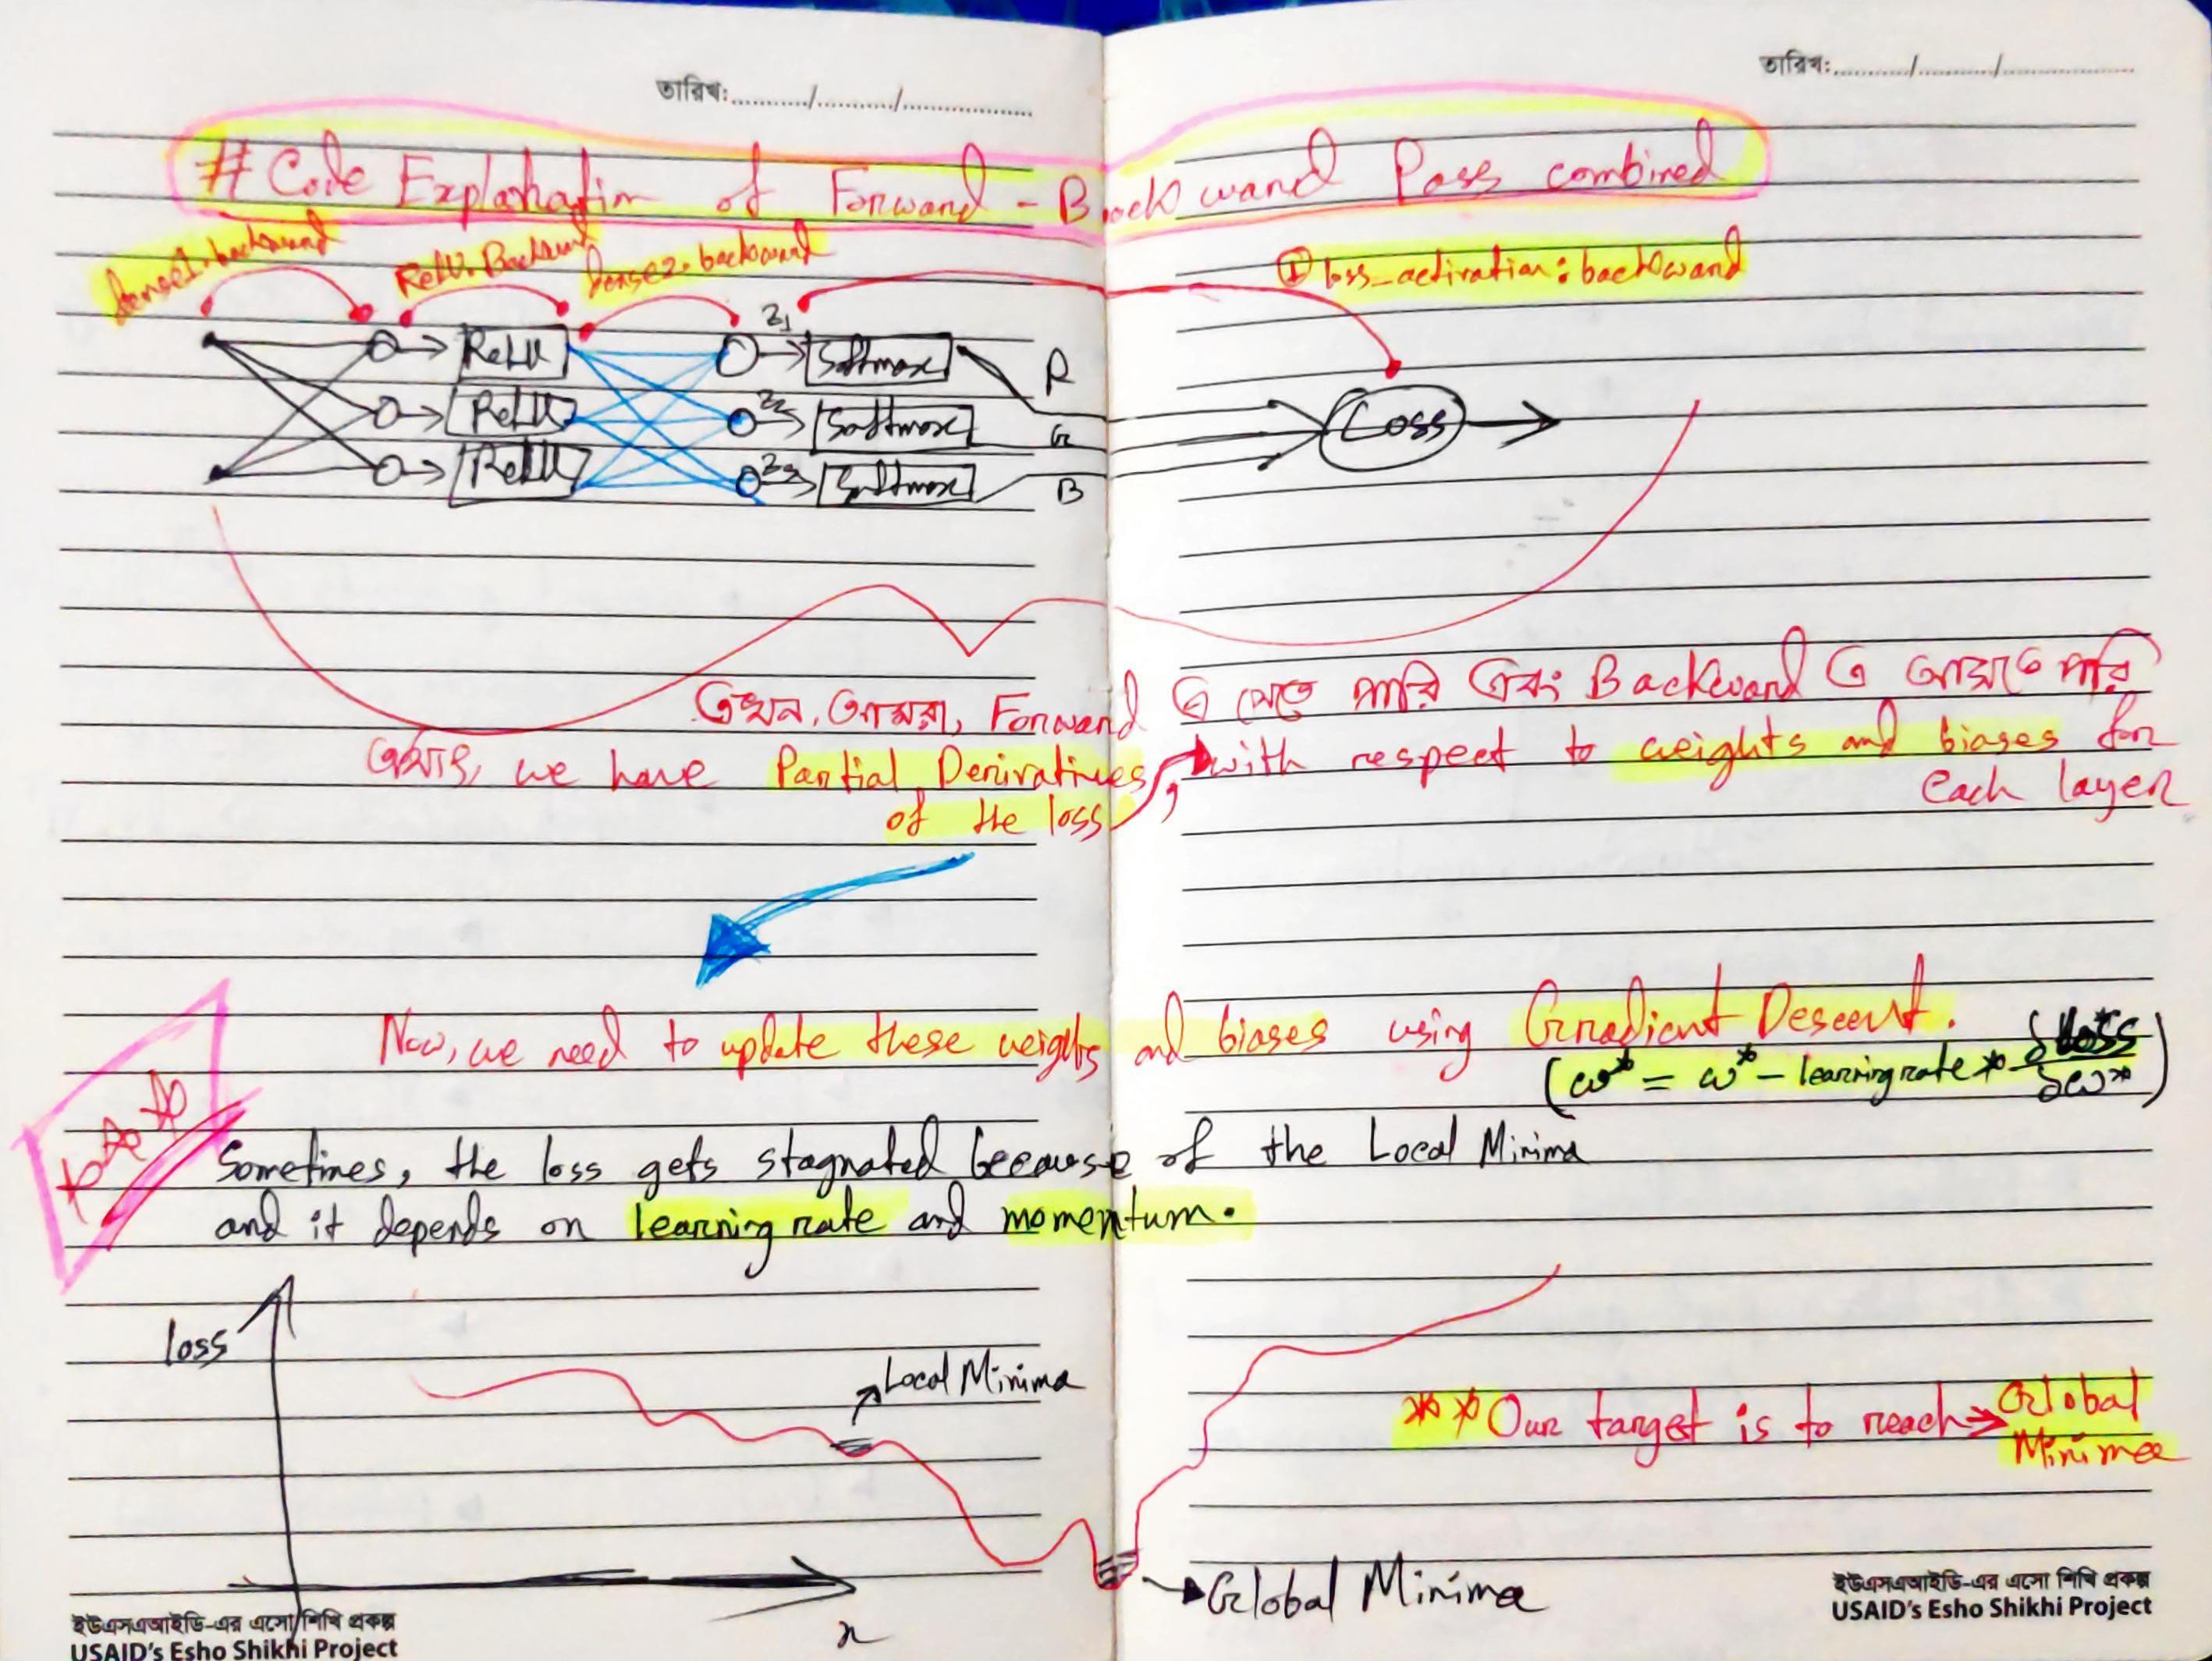 তারিখ:........../........../..................
তারিখ:........../........../..................
# Code Explanation of Forward - Backward Pass combined
dense1.backward
ReLU.Backward
dense2.backward
① loss_activation.backward
ReLU
z1
Softmax
R
ReLU
z2
Softmax
G
Loss
ReLU
z3
Softmax
B
এখন, আমরা, Forward এ যেতে পারি এবং Backward এ আসতে পারি
অর্থাৎ, we have Partial Derivatives with respect to weights and biases for
of the loss, each layer
Now, we need to update these weights and biases using Gradient Descent.
(ω* = ω* - learning rate * δloss/δω*)
***
Sometimes, the loss gets stagnated because of the Local Minima
and it depends on learning rate and momentum.
loss
Local Minima
** Our target is to reach → Global
Minima
Global Minima
x
ইউএসএআইডি-এর এসো শিখি প্রকল্প
USAID's Esho Shikhi Project
ইউএসএআইডি-এর এসো শিখি প্রকল্প
USAID's Esho Shikhi Project